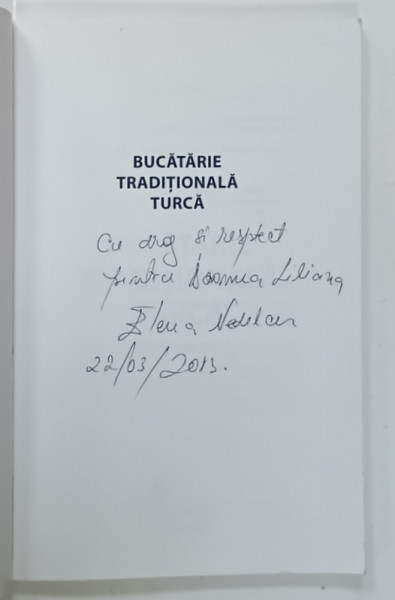 BUCĂTĂRIE
TRADIȚIONALĂ
TURCĂ
Cu drag și respect
pentru Doamna Liliana
Elena Nedelcu
22/03/2013.